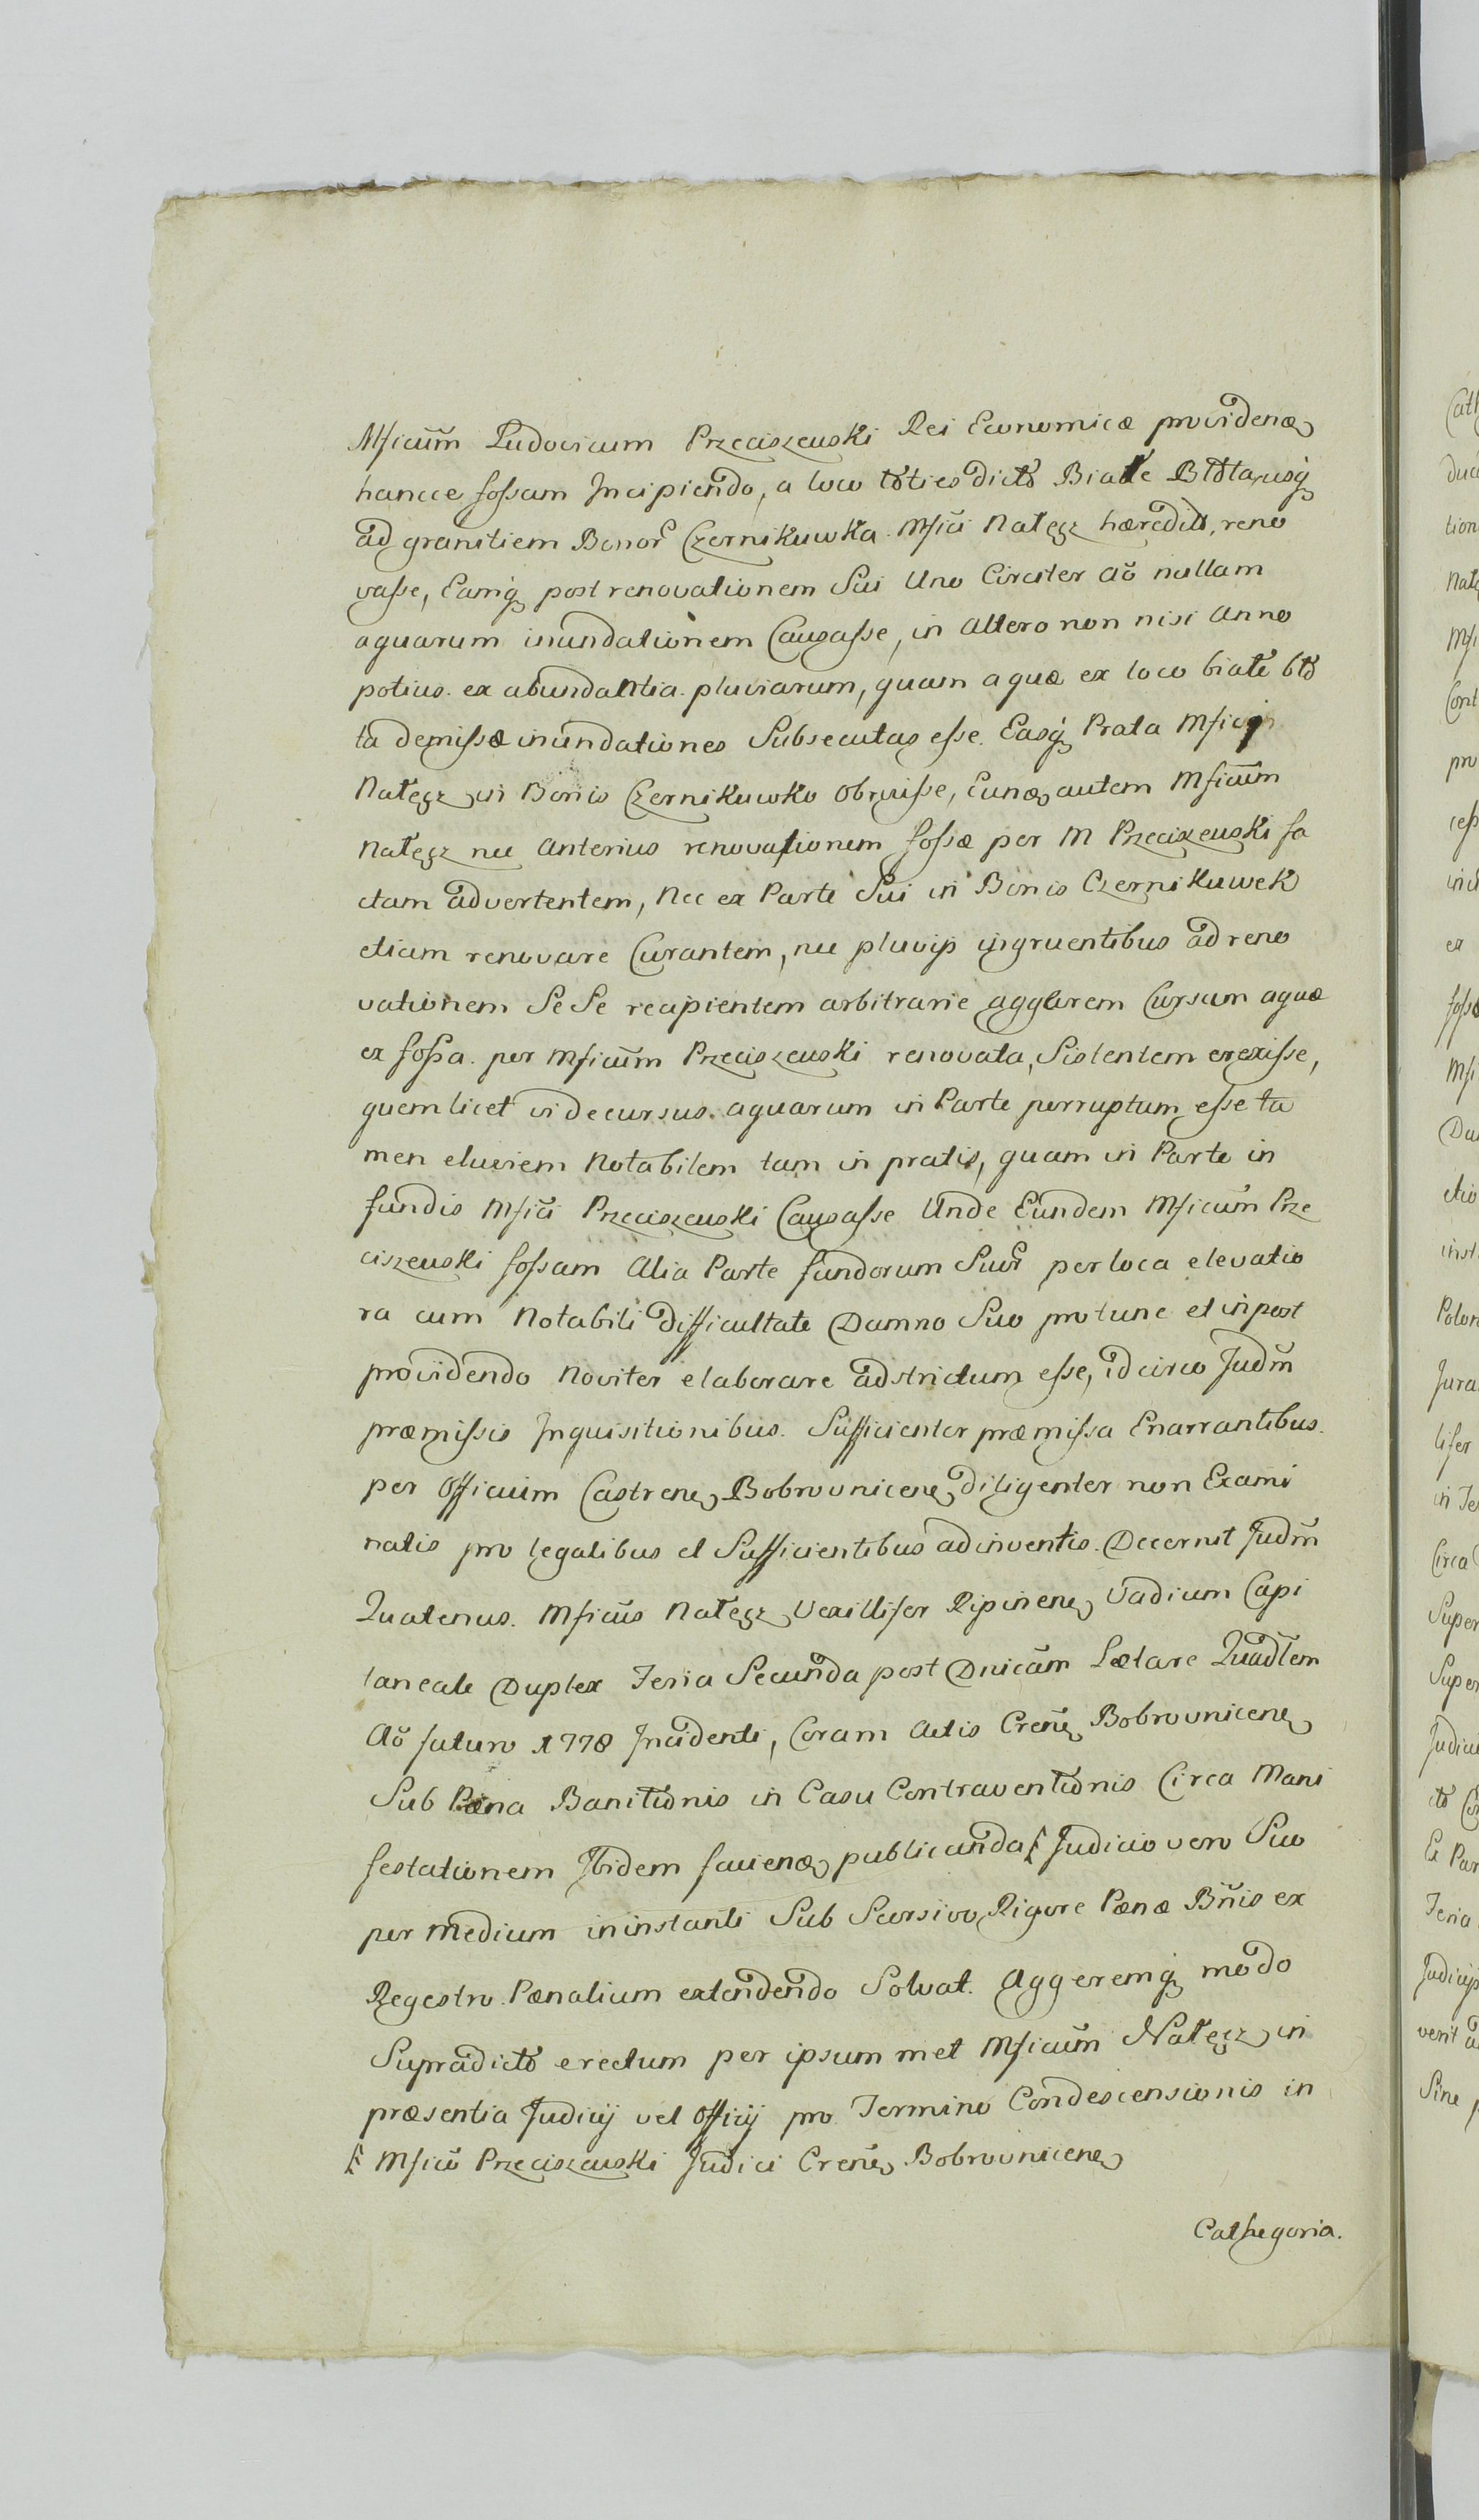 Mficum̃ Ludovicum Przeciszewski Rei Economicæ providenę
hancce fossam Incipiendo, a loco toties dicto Białe Błota, usq̃
ad granitiem Bonor̃ Czernikuwka Mfici Nałęcz hæredit, reno
vasse, Eamq̃ post renovationem Sui Uno Circiter Aõ nullam
aquarum inundationem Causasse, in Altero non nisi Anno
potius ex abundantia pluviarum, quam aquæ ex loco białe bło
ta demissæ inundationes Subsecutas esse. Easq̃ Prata Mfici
Nałęcz in Bonis Czernikuwko obruisse, Eunę autem Mficum̃
Nałęcz nec Anterius renovationem fossæ per M Przeciszewski fa
ctam advertentem, Nec ex Parte Sui in Bonis Czernikuwek
etiam renovare Curantem, nec pluvijs ingruentibus ad reno
vationem Se Se recipientem arbitrarie aggerem Cursum aquæ
ex fossa per Mficum̃ Przeciszewski renovata, Sistentem erexisse,
quem licet vi decursus aquarum in Parte perruptum esse ta
men eluviem Notabilem tam in pratis, quam in Parte in
fundis Mfici Przeciszewski Causasse Unde Eundem Mficum̃ Prze
ciszewski fossam Alia Parte fundorum Suor̃ per loca elevatio
ra cum Notabili difficultate Damno Suo protunc et inpost
providendo Noviter elaborare adstrictum esse, idcirco Judm̃
præmissis Inquisitionibus Sufficienter præmissa Enarrantibus
per Officium Castrenę Bobrovnicenę diligenter non Exami
natis pro legalibus et Sufficientibus adinventis. Decernit Judm̃
Quatenus Mficus̃ Nałęcz Vexillifer Ripinenę Vadium Capi
taneale Duplex Feria Secunda post Dnicam̃ Lætare Quadlem̃
Aõ futuro 1778 Incidenti, Coram Actis Creñę Bobrovnicenę
Sub Pæna Banitionis in Casu Contraventionis Circa Mani
festationem Ibidem facienę publicanda Judicio vero Suo
per Medium in instanti Sub Scorsivo Rigore Pænæ Bñis ex
Regestro Pænalium extendendo Solvat. Aggeremq̃ modo
Supradicto erectum per ipsum met Mficum̃ Nałęcz in
præsentia Judicij vel Officij pro Termino Condescensionis in
Mfico Przeciszewski Judici Creñę Bobrovnicenę
Cathegoria.